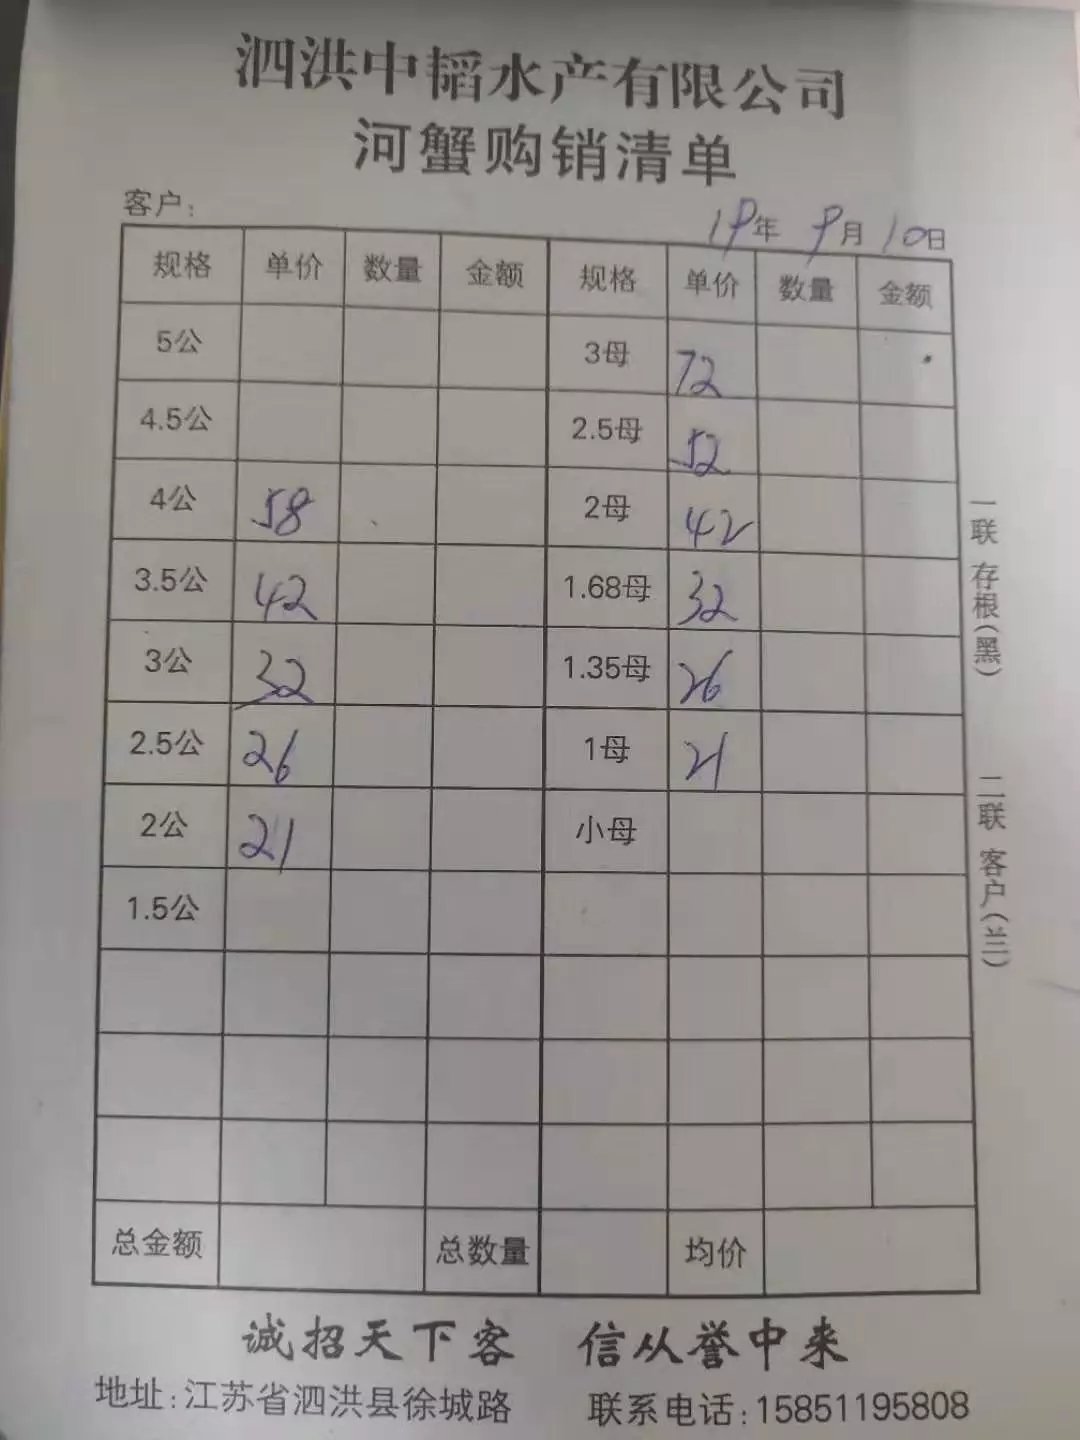 泗洪中韬水产有限公司
河蟹购销清单
客户:
19年 9月 10日
规格 单价 数量 金额 规格 单价 数量 金额
5公 3母 72
4.5公 2.5母 52
4公 58 2母 42
3.5公 42 1.68母 32
3公 32 1.35母 26
2.5公 26 1母 21
2公 21 小母
1.5公
总金额 总数量 均价
一联 存根(黑) 二联 客户(兰)
诚招天下客 信从誉中来
地址:江苏省泗洪县徐城路 联系电话:15851195808